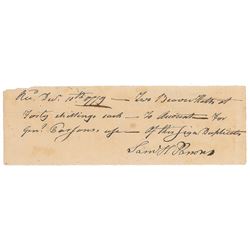 Rec. Dec. 10th 1779 — Two Beaver Hatts at
Forty shillings each — To Account For
Genl. Parsons use — Of this Sign Duplicates
Saml. H. Parsons